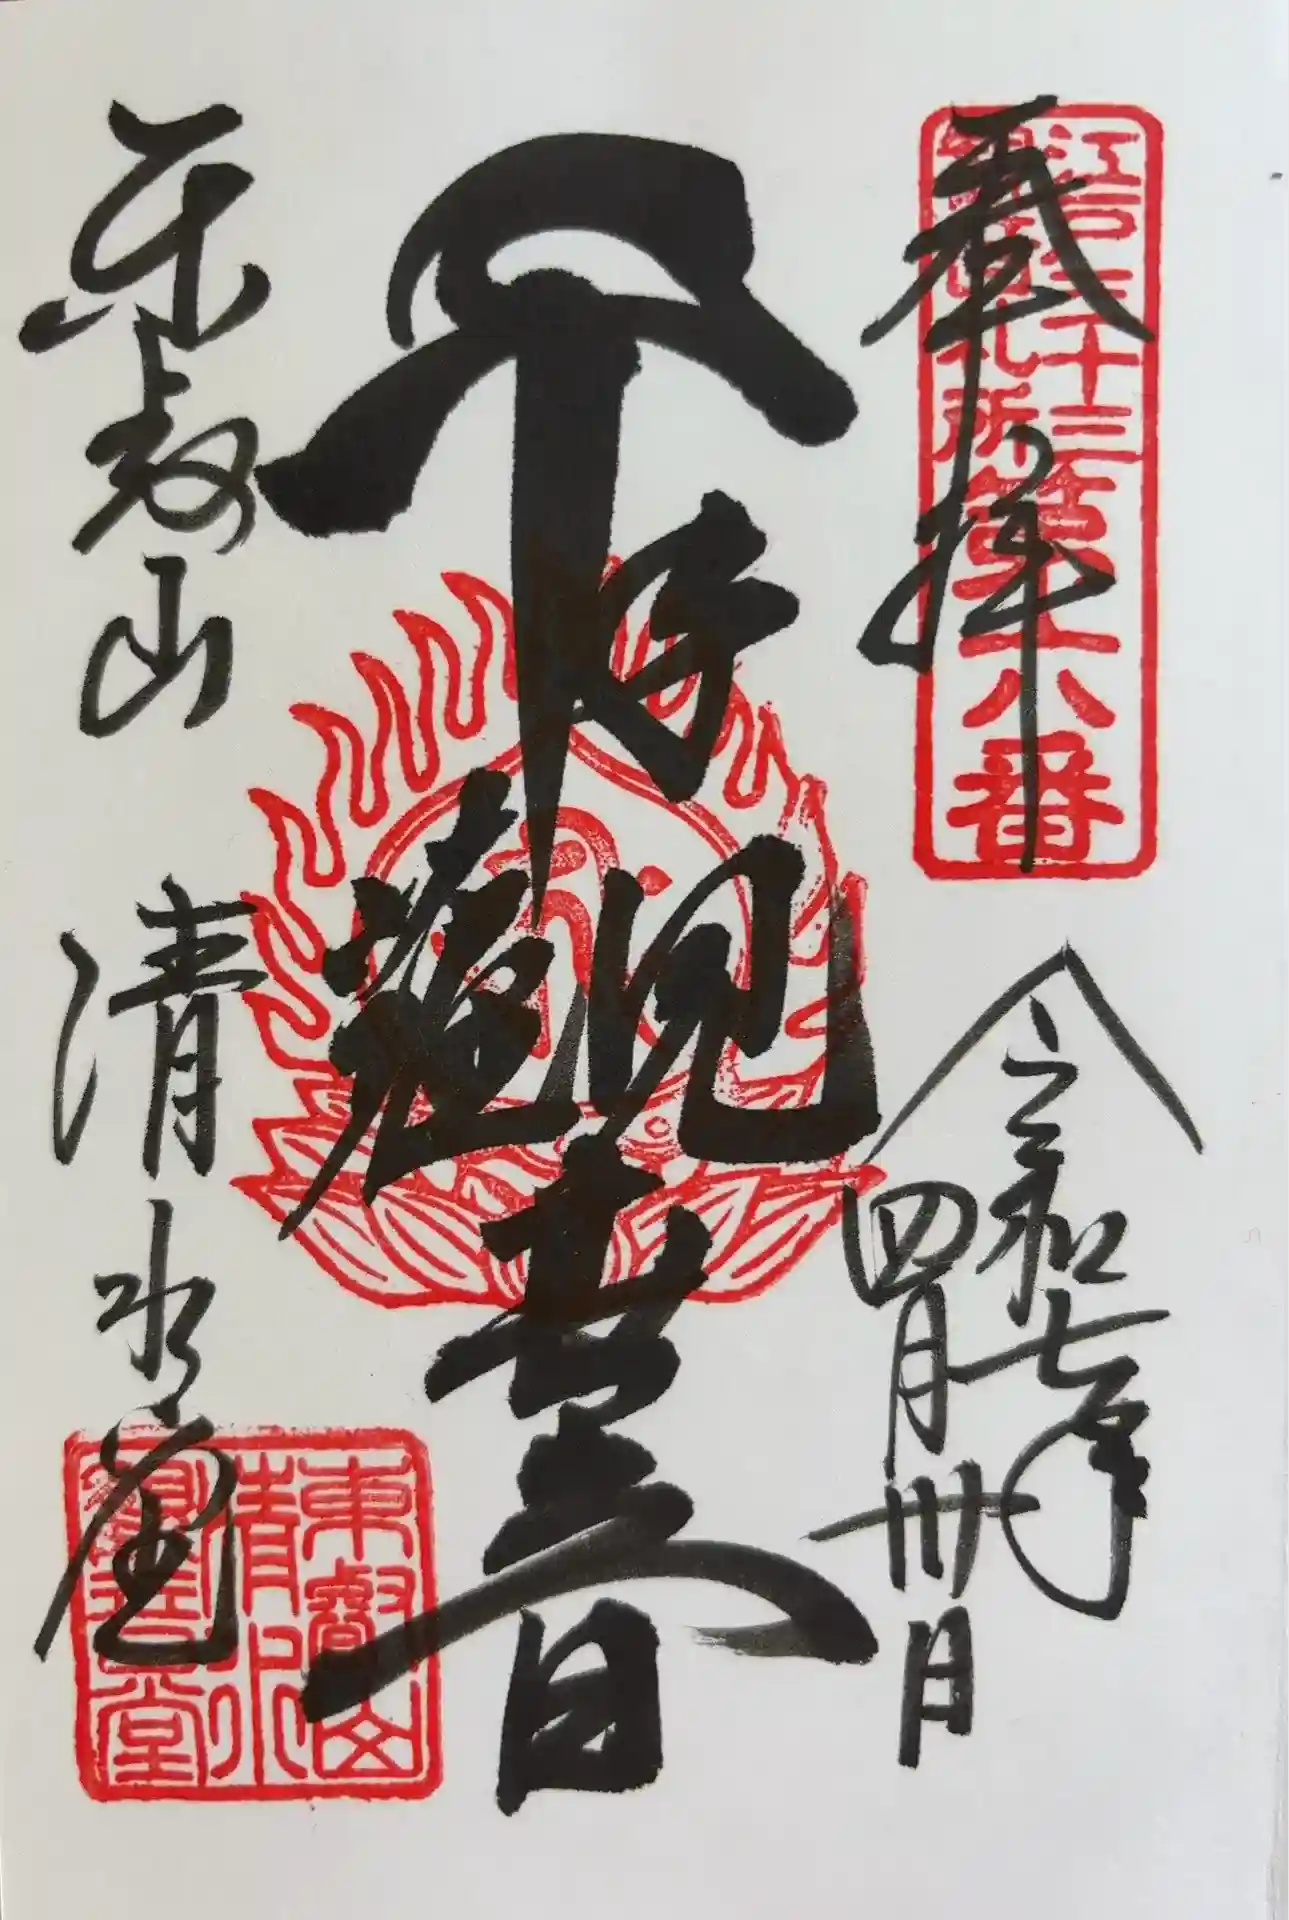 奉拝
江戸三十三
観音札所
第六番
令和七年
四月卅日
千手觀世音
東叡山 清水堂
東叡山
清水
觀音堂